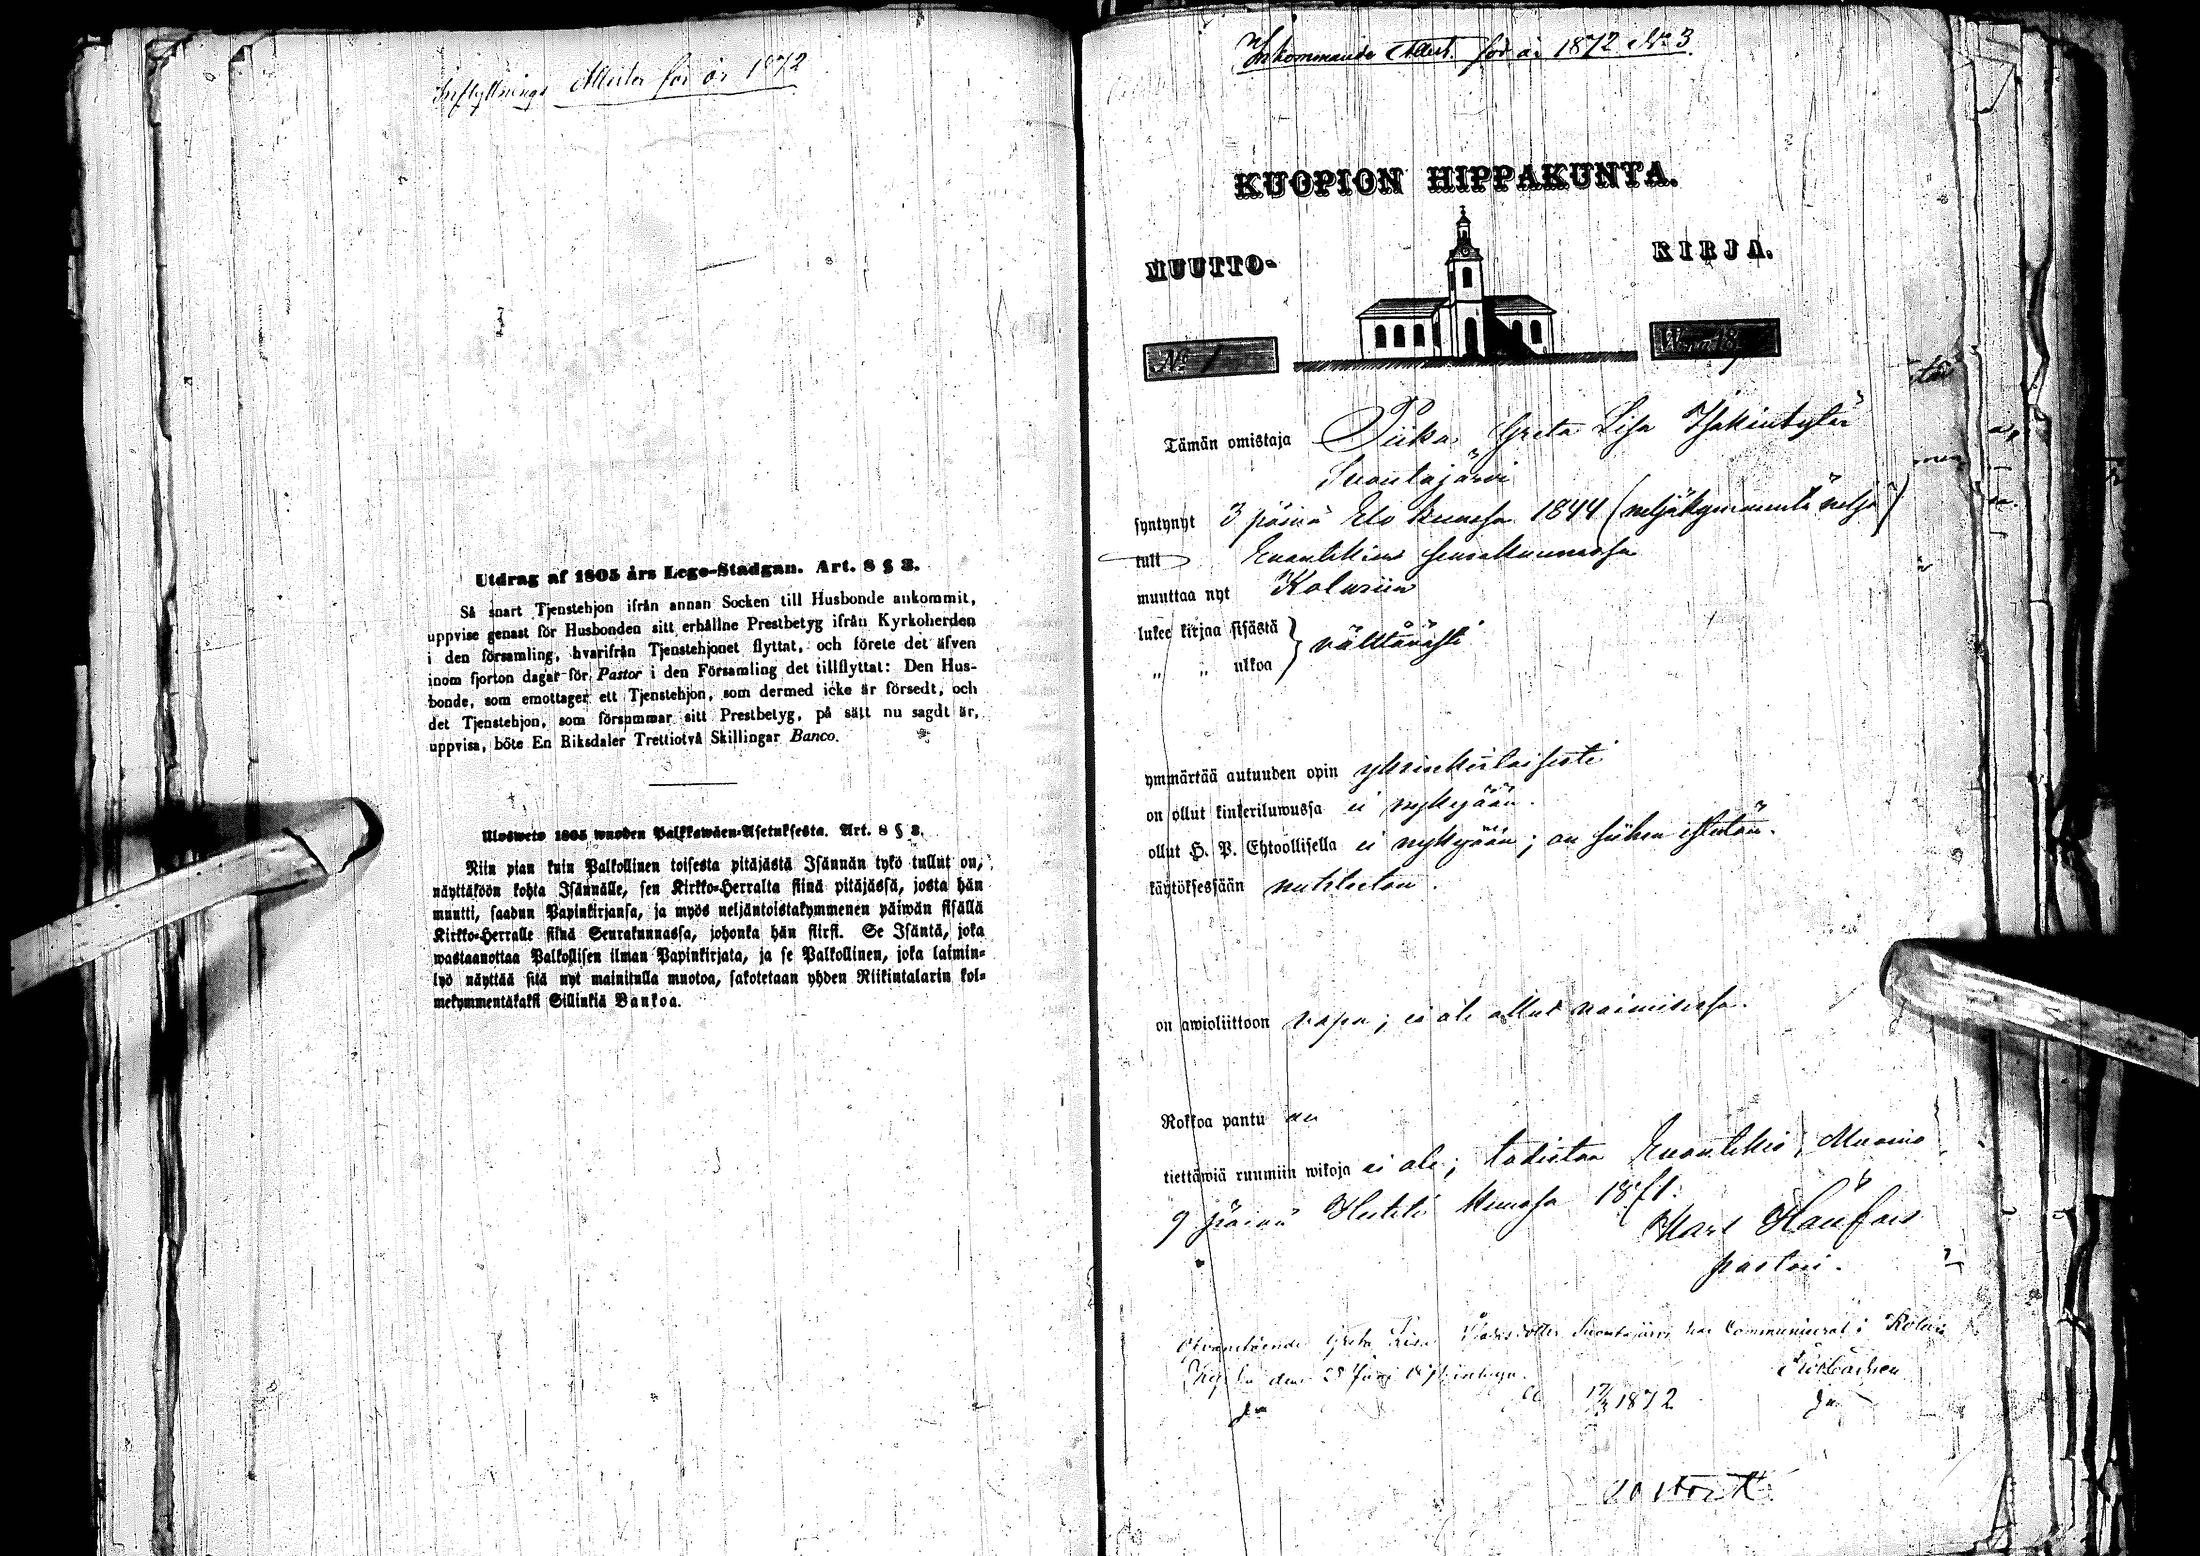 Inflyttnings Attester för år 1872
Utdrag af 1805 års Lego-Stadgan. Art. 8 § 3.
Så snart Tjenstehjon ifrån annan Socken till Husbonde ankommit,
uppvise genast för Husbonden sitt erhållne Prestbetyg ifrån Kyrkoherden
i den församling, hvarifrån Tjenstehjonet flyttat, och förete det äfven
inom fjorton dagar för Pastor i den Församling det tillflyttat: Den Hus-
bonde, som emottager ett Tjenstehjon, som dermed icke är försedt, och
det Tjenstehjon, som försummar sitt Prestbetyg, på sätt nu sagdt är,
uppvisa, böte En Riksdaler Trettiotvå Skillingar Banco.
Ulosweto 1805 wuoden Palkkawäen-Asetuksesta. Art. 8 § 3.
Niin pian kuin Palkollinen toisesta pitäjästä Isännän tykö tullut on,
näyttäköön kohta Isännälle, sen Kirkko-Herralta siinä pitäjässä, josta hän
muutti, saadun Papinkirjansa, ja myös neljäntoistakymmenen päiwän sisällä
Kirkko-Herralle siinä Seurakunnassa, johonka hän siirsi. Se Isäntä, joka
wastaanottaa Palkollisen ilman Papinkirjata, ja se Palkollinen, joka laimin-
lyö näyttää sitä nyt mainitulla muotoa, sakotetaan yhden Riikintalarin kol-
mekymmentäkaksi Sillinkiä Bankoa.
Inkommande Attest. för år 1872 No 3
KUOPION HIPPAKUNTA.
MUUTTO- KIRJA.
No 1 Wuonna 18
Tämän omistaja Piika Greta Lisa Isakintytär
Suontajärvi
syntynyt 3 päivä Elo kuussa 1844 (neljäkymmentä neljä)
tull Enontekiön seurakunnassa
muuttaa nyt Kolariin
lukee kirjaa sisästä
„ „ ulkoa välttävästi
ymmärtää autuuden opin yksinkertaisesti
on ollut kinkeriluwussa ei nykyään.
ollut H. P. Ehtoollisella ei nykyään; on siihen
käytöksessään nuhteeton.
on awioliittoon vapa; ei ole ollut naimisessa.
Rokkoa pantu on
tiettäwiä ruumiin wikoja ei ole; todistaa Enontekiö, Muonio
9 päivä Huhti kuussa 1871.
Karl
pastori.
Ofvanstående Greta Lisa Isaksdotter Suontajärvi har Communicerat i Kolari
Kyrka den 25 Juni
1872